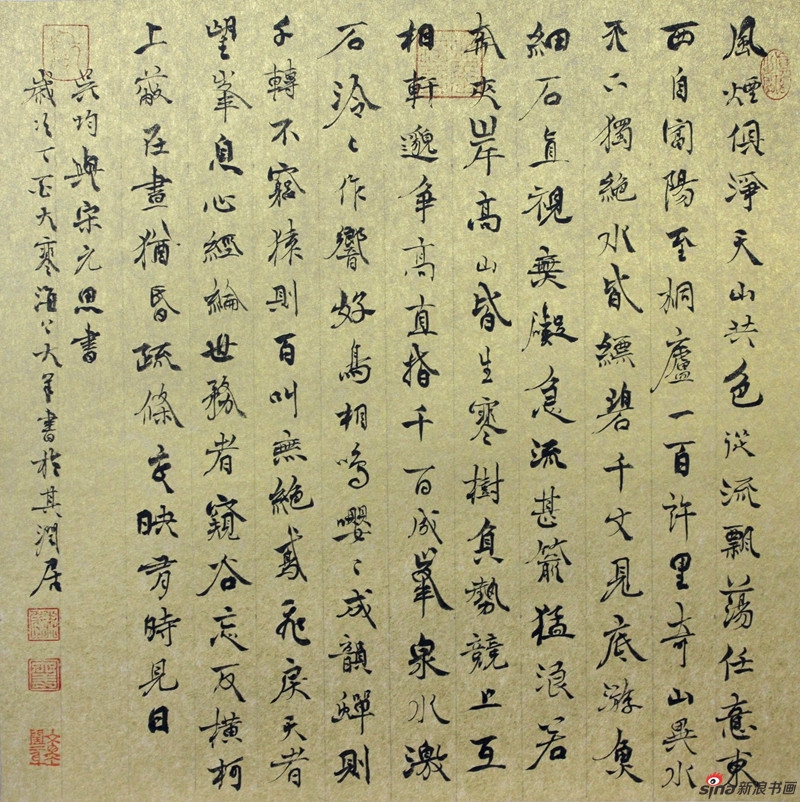 風煙俱淨天山共色從流飄蕩任意東
西自富陽至桐廬一百許里奇山異水
天下獨絕水皆縹碧千丈見底游魚
細石直視無礙急流甚箭猛浪若
奔夾岸高山皆生寒樹負勢競上互
相軒邈爭高直指千百成峯泉水激
石泠泠作響好鳥相鳴嚶嚶成韻蟬則
千轉不窮猿則百叫無絕鳶飛戾天者
望峯息心經綸世務者窺谷忘反橫柯
上蔽在晝猶昏疏條交映有時見日
吳均與宋元思書
歲次丁酉大寒海公大羊書於其潤居
sina新浪书画